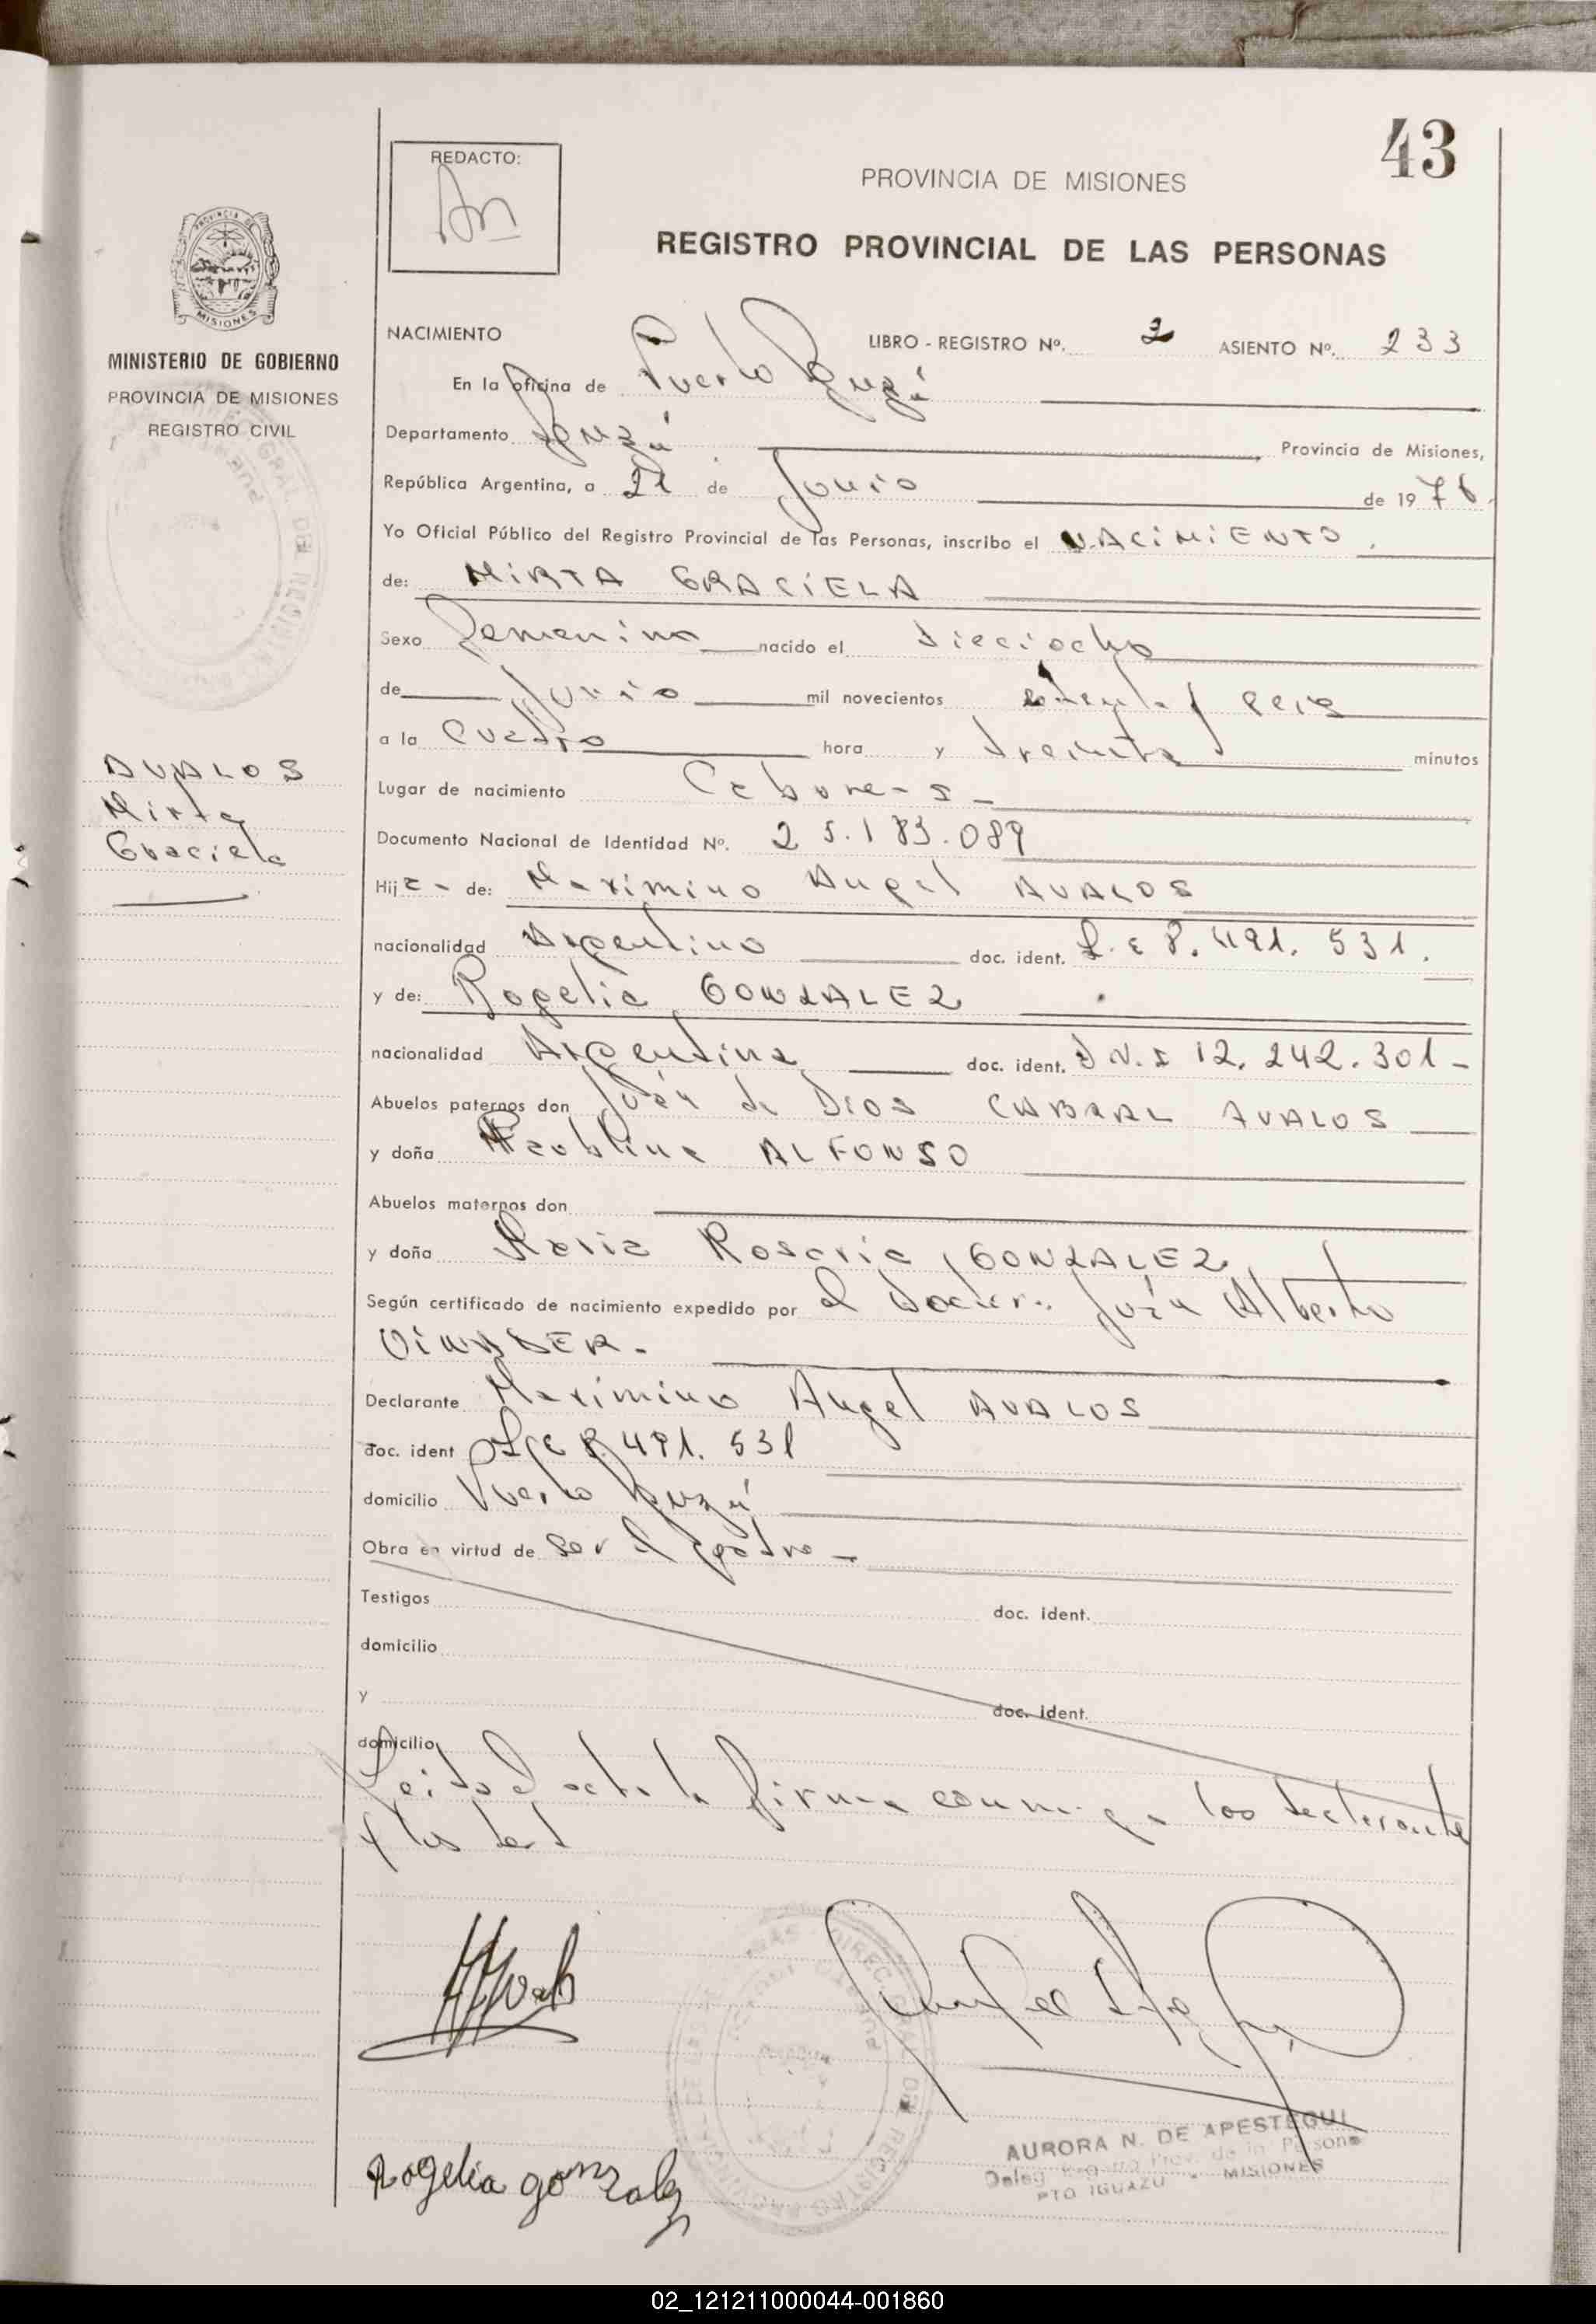 43
REDACTO:
PROVINCIA DE MISIONES
REGISTRO PROVINCIAL DE LAS PERSONAS
MISIONES
MINISTERIO DE GOBIERNO
PROVINCIA DE MISIONES
REGISTRO CIVIL
AVALOS
Mirta
Graciela
NACIMIENTO LIBRO - REGISTRO Nº. 2 ASIENTO Nº. 233
En la oficina de Puerto Iguazú
Departamento Iguazú Provincia de Misiones,
República Argentina, a 21 de Junio de 1976.
Yo Oficial Público del Registro Provincial de las Personas, inscribo el NACIMIENTO.
de: MIRTA GRACIELA
Sexo Femenino nacido el dieciocho
de Junio mil novecientos setenta y seis
a la cuatro hora y treinta minutos
Lugar de nacimiento
Documento Nacional de Identidad Nº. 25.183.089
Hija - de: Maximino Angel AVALOS
nacionalidad Argentino doc. ident. L. E 8.491.531.
y de: Rogelia GONZALEZ
nacionalidad Argentina doc. ident. D N. I 12.242.301-
Abuelos paternos don Juán de Dios CABRAL AVALOS
y doña ALFONSO
Abuelos maternos don
y doña Maria Rosaria GONZALEZ
Según certificado de nacimiento expedido por el Doctor: Juán Alberto
Declarante Maximino Angel AVALOS
doc. ident L E 8.491.531
domicilio Puerto Iguazú
Obra en virtud de ser el padre -
Testigos doc. ident.
domicilio
y doc. ident.
domicilio
Leida el acta la firman conmigo los declarante
y los
Rogelia gonzalez
AURORA N. DE APESTEGUI
PTO IGUAZU - MISIONES
02_121211000044-001860